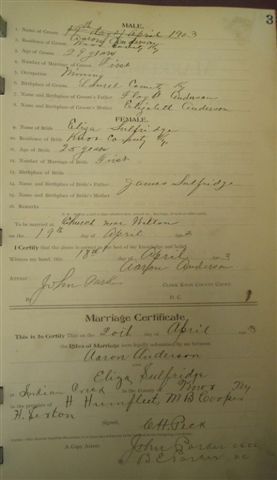 3
MALE.
19th day of April 1903
1. Name of Groom Aaron Anderson
2. Residence of Groom Knox County Ky
3. Age of Groom 29 years
4. Number of Marriage of Groom First
5. Occupation Mining
6. Birthplace of Groom Laurel County Ky
7. Name and Birthplace of Groom's Father Anderson
8. Name and Birthplace of Groom's Mother Elizabeth Anderson
FEMALE.
9. Name of Bride Eliza Sulfridge
10. Residence of Bride Knox County Ky
11. Age of Bride 25 years
12. Number of Marriage of Bride First
13. Birthplace of Bride
14. Name and Birthplace of Bride's Father James Sulfridge
15. Name and Birthplace of Bride's Mother
16. Remarks
To be Married at Church near Wilton
on the 19th day of April 3
I Certify that the above is correct to the best of my knowledge and belief.
Witness my hand, this 18th day of April 3
Aaron Anderson
Attest:
CLERK KNOX COUNTY COURT
John Park
D. C.
Marriage Certificate.
This is to Certify That on the 20th day of April 3
the Rites of Marriage were legally solemnized by me between
Aaron Anderson
and Eliza Sulfridge
at Indian Creek in the County of Knox Ky
in the presence of H Humfleet M B Cooper
H. Sexton
Signed,
A Copy Attest: John Parker